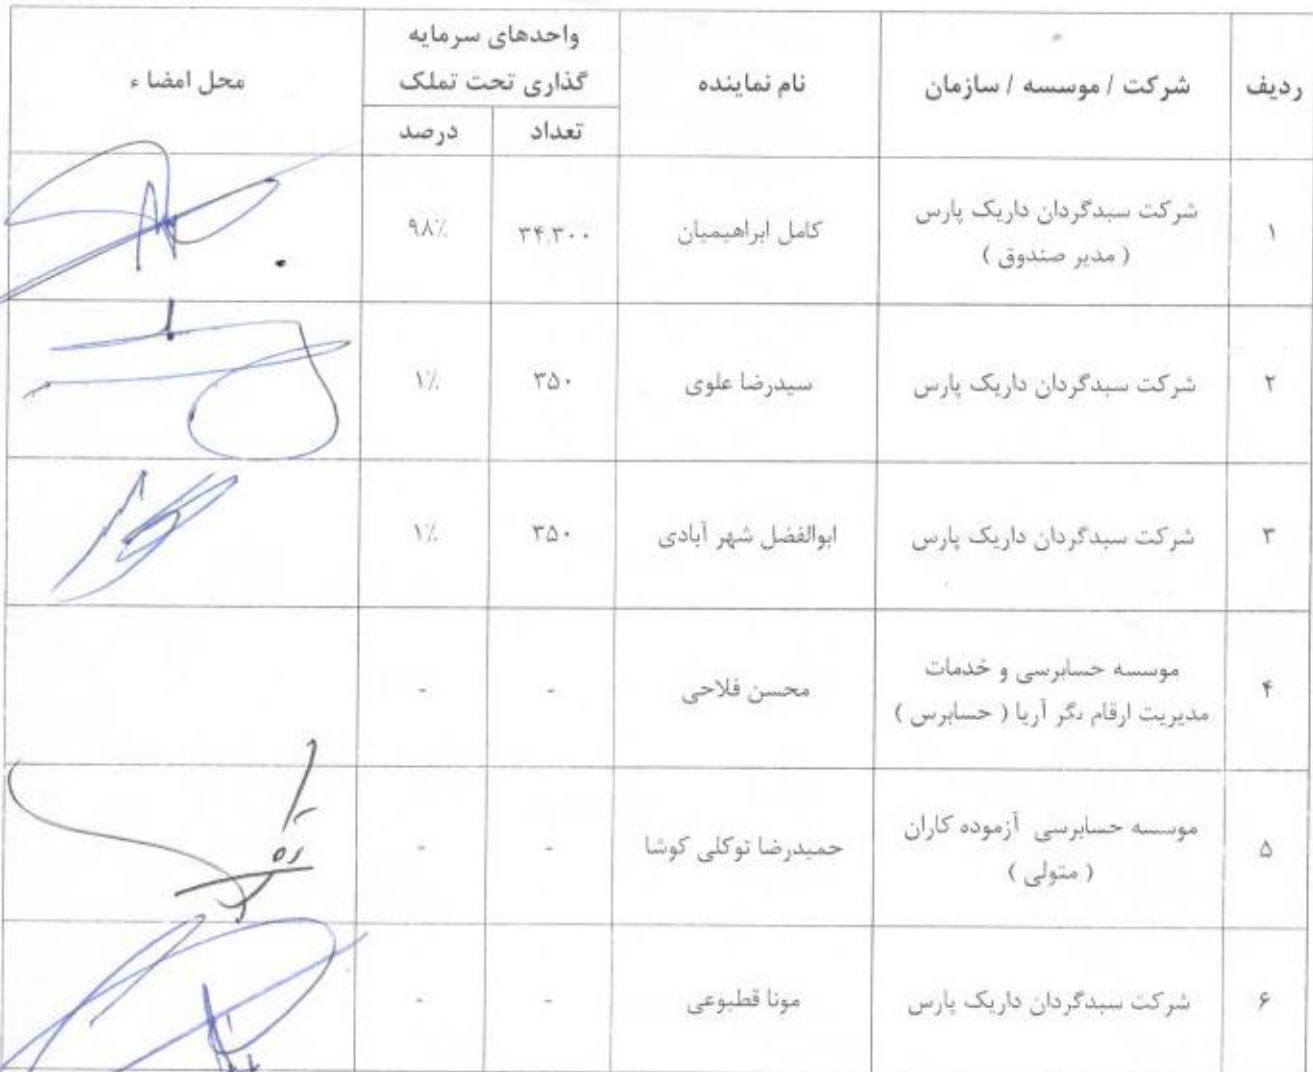 ردیف
شرکت / موسسه / سازمان
نام نماینده
واحدهای سرمایه
گذاری تحت تملک
تعداد
درصد
محل امضاء
۱
شرکت سبدگردان داریک پارس
( مدیر صندوق )
کامل ابراهیمیان
۳۴,۳۰۰
۹۸٪
۲
شرکت سبدگردان داریک پارس
سیدرضا علوی
۳۵۰
۱٪
۳
شرکت سبدگردان داریک پارس
ابوالفضل شهر آبادی
۳۵۰
۱٪
۴
موسسه حسابرسی و خدمات
مدیریت ارقام نگر آریا ( حسابرس )
محسن فلاحی
-
-
۵
موسسه حسابرسی آزموده کاران
( متولی )
حمیدرضا توکلی کوشا
-
-
۶
شرکت سبدگردان داریک پارس
مونا قطبوعی
-
-